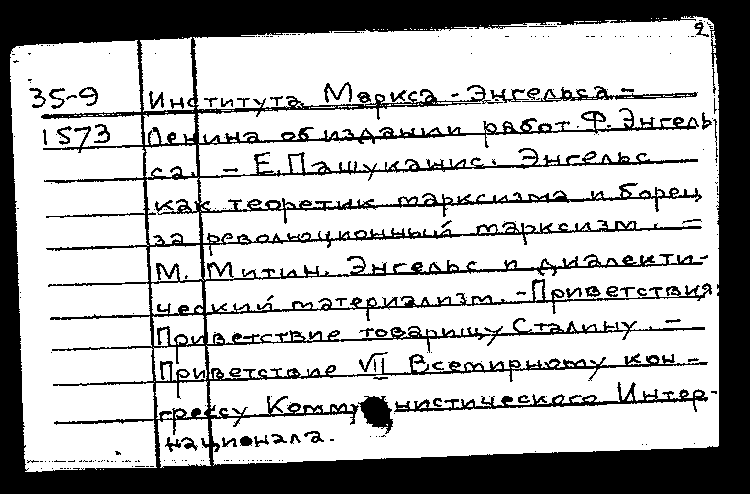 2
35-9 Института Маркса - Энгельса -
1573 Ленина об издании работ Ф. Энгель
са. - Е. Пашуканис. Энгельс
как теоретик марксизма и борец
за революционный марксизм. =
М. Митин. Энгельс и диалекти-
ческий материализм. - Приветствия:
Приветствие товарищу Сталину. -
Приветствие VII Всемирному кон-
грессу Коммунистического Интер-
национала.